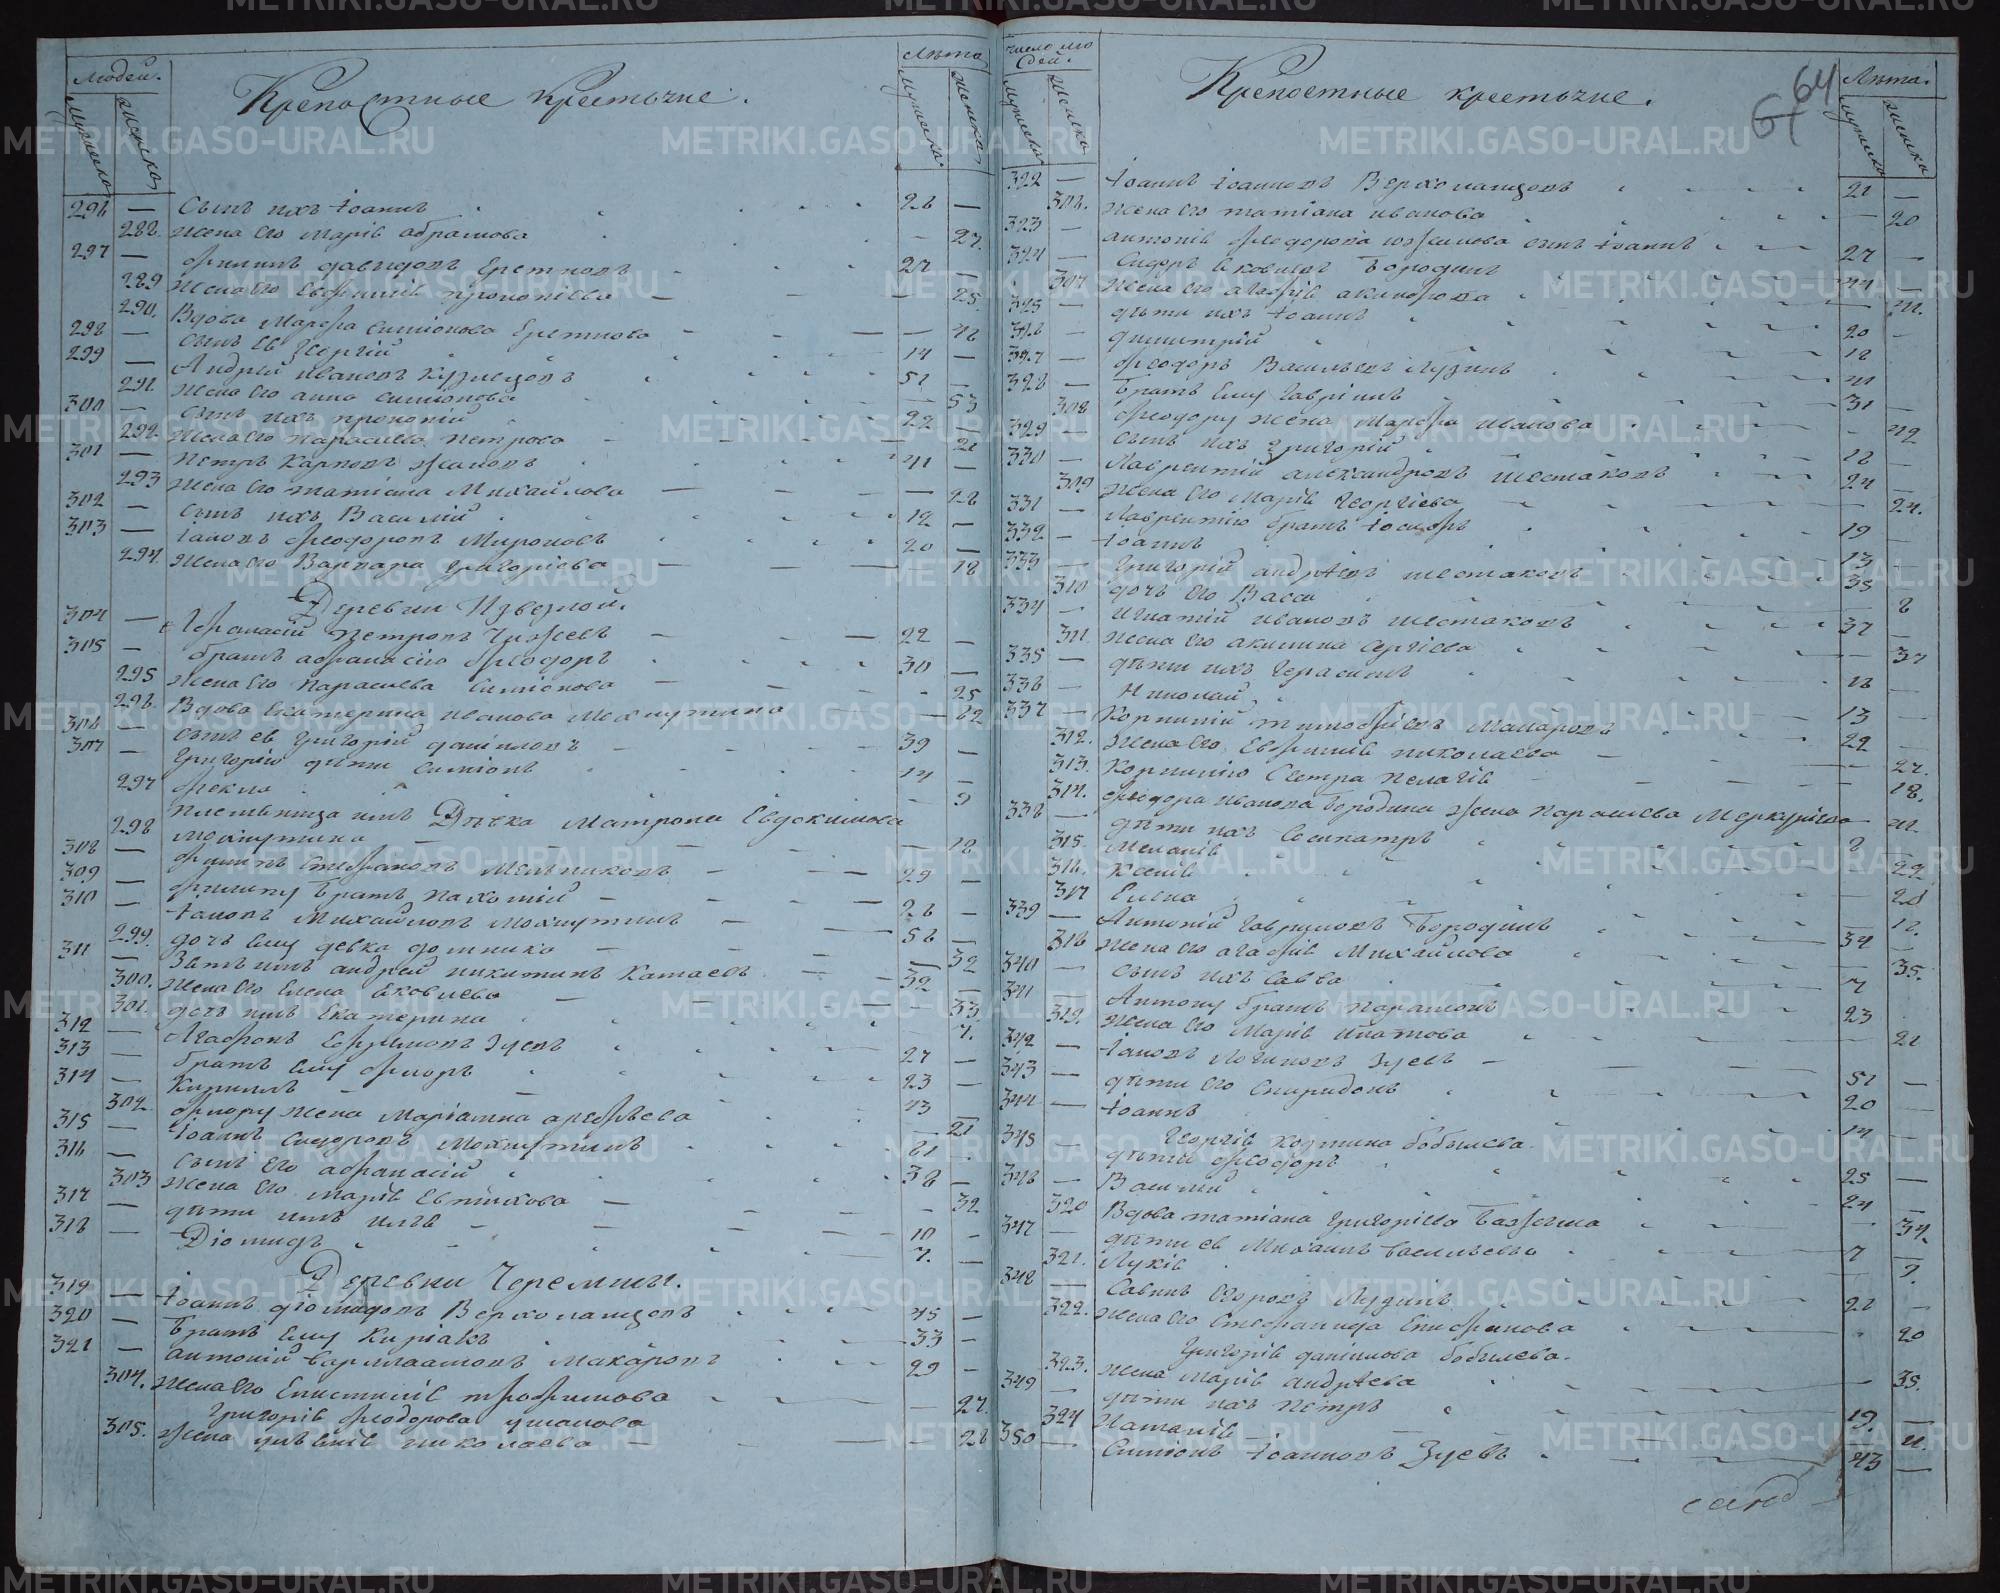 людей.
мужеска
женска
Крепостные крестьяне.
лѣта
мужеска
женска
296 — Сынъ ихъ Іоаннъ 26 —
288. жена его Марія абрамова — 27.
297 — филипъ давидовъ Еретновъ 27 —
289 жена его Евфимія прокопіева — 25.
290. Вдова Марфа Симіонова Еретнова — 48
298 — сынъ ея Георгій 14 —
299 — Андрей Ивановъ Кузнецовъ 51 —
291. жена его анна симіонова — 53
300 — сынъ ихъ прокопій 22 —
292. жена его параскева петрова — 21
301 — петръ Карповъ 41 —
293 жена его татіана Михайлова — 28
302 — сынъ ихъ Василій 12 —
303 — Іаковъ феодоровъ Мироновъ 20 —
294. жена его Варвара григоріева — 18
Деревни Извезной.
304 — петровъ 22 —
305 — братъ афанасію феодоръ 30 —
295 жена его параскева симіонова — 25
296. Вдова Екатерина иванова Мохнутина — 62
306 — сынъ ея григорій даніиловъ 39 —
307 — григорію дѣти симіонъ 14 —
297 фекла — 9
племянница имъ Дѣвка Матрона Евдокимова
298 Мохнутина — 18
308 — филипъ стефановъ Мельниковъ 29 —
309 — филипу братъ пахомій 26 —
310 — Іаковъ Михайловъ Мохнутинъ 56 —
299. дочь ему девка домника — 32
311 — Зять имъ андрей никитинъ Катаевъ 32 —
300. жена его Елена яковлева — 33
301. дочь имъ екатерина — 7.
312 — Агафонъ Ефимовъ Зуевъ 27 —
313 — братъ ему флоръ 23 —
314 — Кириллъ 13 —
302. флору жена Маріамна арефьева — 21
315 — Іоаннъ сидоровъ Мохнутинъ 61 —
316 — сынъ его афанасій 38 —
303 жена его Марія Евтихова — 32
317 — дѣти имъ илья 10 —
318 — Діомидъ 7. —
Деревни Черемши.
319 — Іоаннъ діомидовъ Верхоланцевъ 45 —
320 — братъ ему Киріакъ 33 —
321 — антоній варлаамовъ Макаровъ 29 —
304. жена его Епистимія трофимова — 27.
григорія феодорова ушакова
305. жена улѣянія николаева — 28
число людей.
мужеска
женска
Крепостные крестьяне.
64
лѣта.
мужеска
женска
322 — Іоаннъ Іоанновъ Верхоланцовъ 21 —
306. жена его татіана иванова — 20
323 — антонія феодорова сынъ Іоаннъ 27 —
324 — Сидоръ яковлевъ Бородинъ 44 —
307 жена его агафія — 41.
325 — дѣти ихъ Іоаннъ 20 —
326 — димитрій 18 —
327 — феодоръ Васильевъ Лузинъ 41 —
328 — братъ ему гавріилъ 31 —
308 феодору жена Марфа иванова — 42
329 — сынъ ихъ григорій 18 —
330 — Лаврентій александровъ шестаковъ 24 —
309 жена его Марія георгіева — 24.
331 — Лаврентію братъ Іосифъ 19 —
332 — Іоаннъ 13 —
333 — григорій андрѣевъ шестаковъ 35 —
310 дочь его Васса — 8
334 — игнатій ивановъ шестаковъ 37 —
311. жена его акилина сергіева — 37
335 — дѣти ихъ герасимъ 16 —
336 — Николай 13 —
337 — Корнилій тимофіевъ Макаровъ 22 —
312. жена его Евфимія николаева — 27.
313. Корнилію сестра пелагія — 18.
314. феодора иванова бородина жена параскева Меркуріева — 41.
338 — дѣти ихъ Сосипатръ 8 —
315. Меланія — 22
316. Ксенія — 20
317 Елена — 12.
339 — Антоній гавриловъ Бородинъ 34 —
318 жена его агафія Михайлова — 35.
340 — сынъ ихъ савва 7 —
341 Антону братъ парамонъ 23
319. жена его Марія ипатова — 21
342 — Іаковъ логиновъ Зуевъ 51 —
343 — дѣти его спиридонъ 20 —
344 — Іоаннъ 14 —
георгія козмина бобылева.
345 — дѣти феодоръ 25 —
346 — Василій 24 —
320 Вдова татіана григоріева Бажгина — 34.
347 — дѣти ея Михаилъ васильевъ 7 —
321. Лукія — 9.
348 — Савинъ Егоровъ Лузинъ 21 —
322. жена его стефанида Епифанова — 20
григорія даніилова бобылева.
323. жена Марія андрѣева — 35.
349 — дѣти ихъ петръ 19. —
324 Наталія — 11.
350 — Симіонъ Іоанновъ Зуевъ 43 —